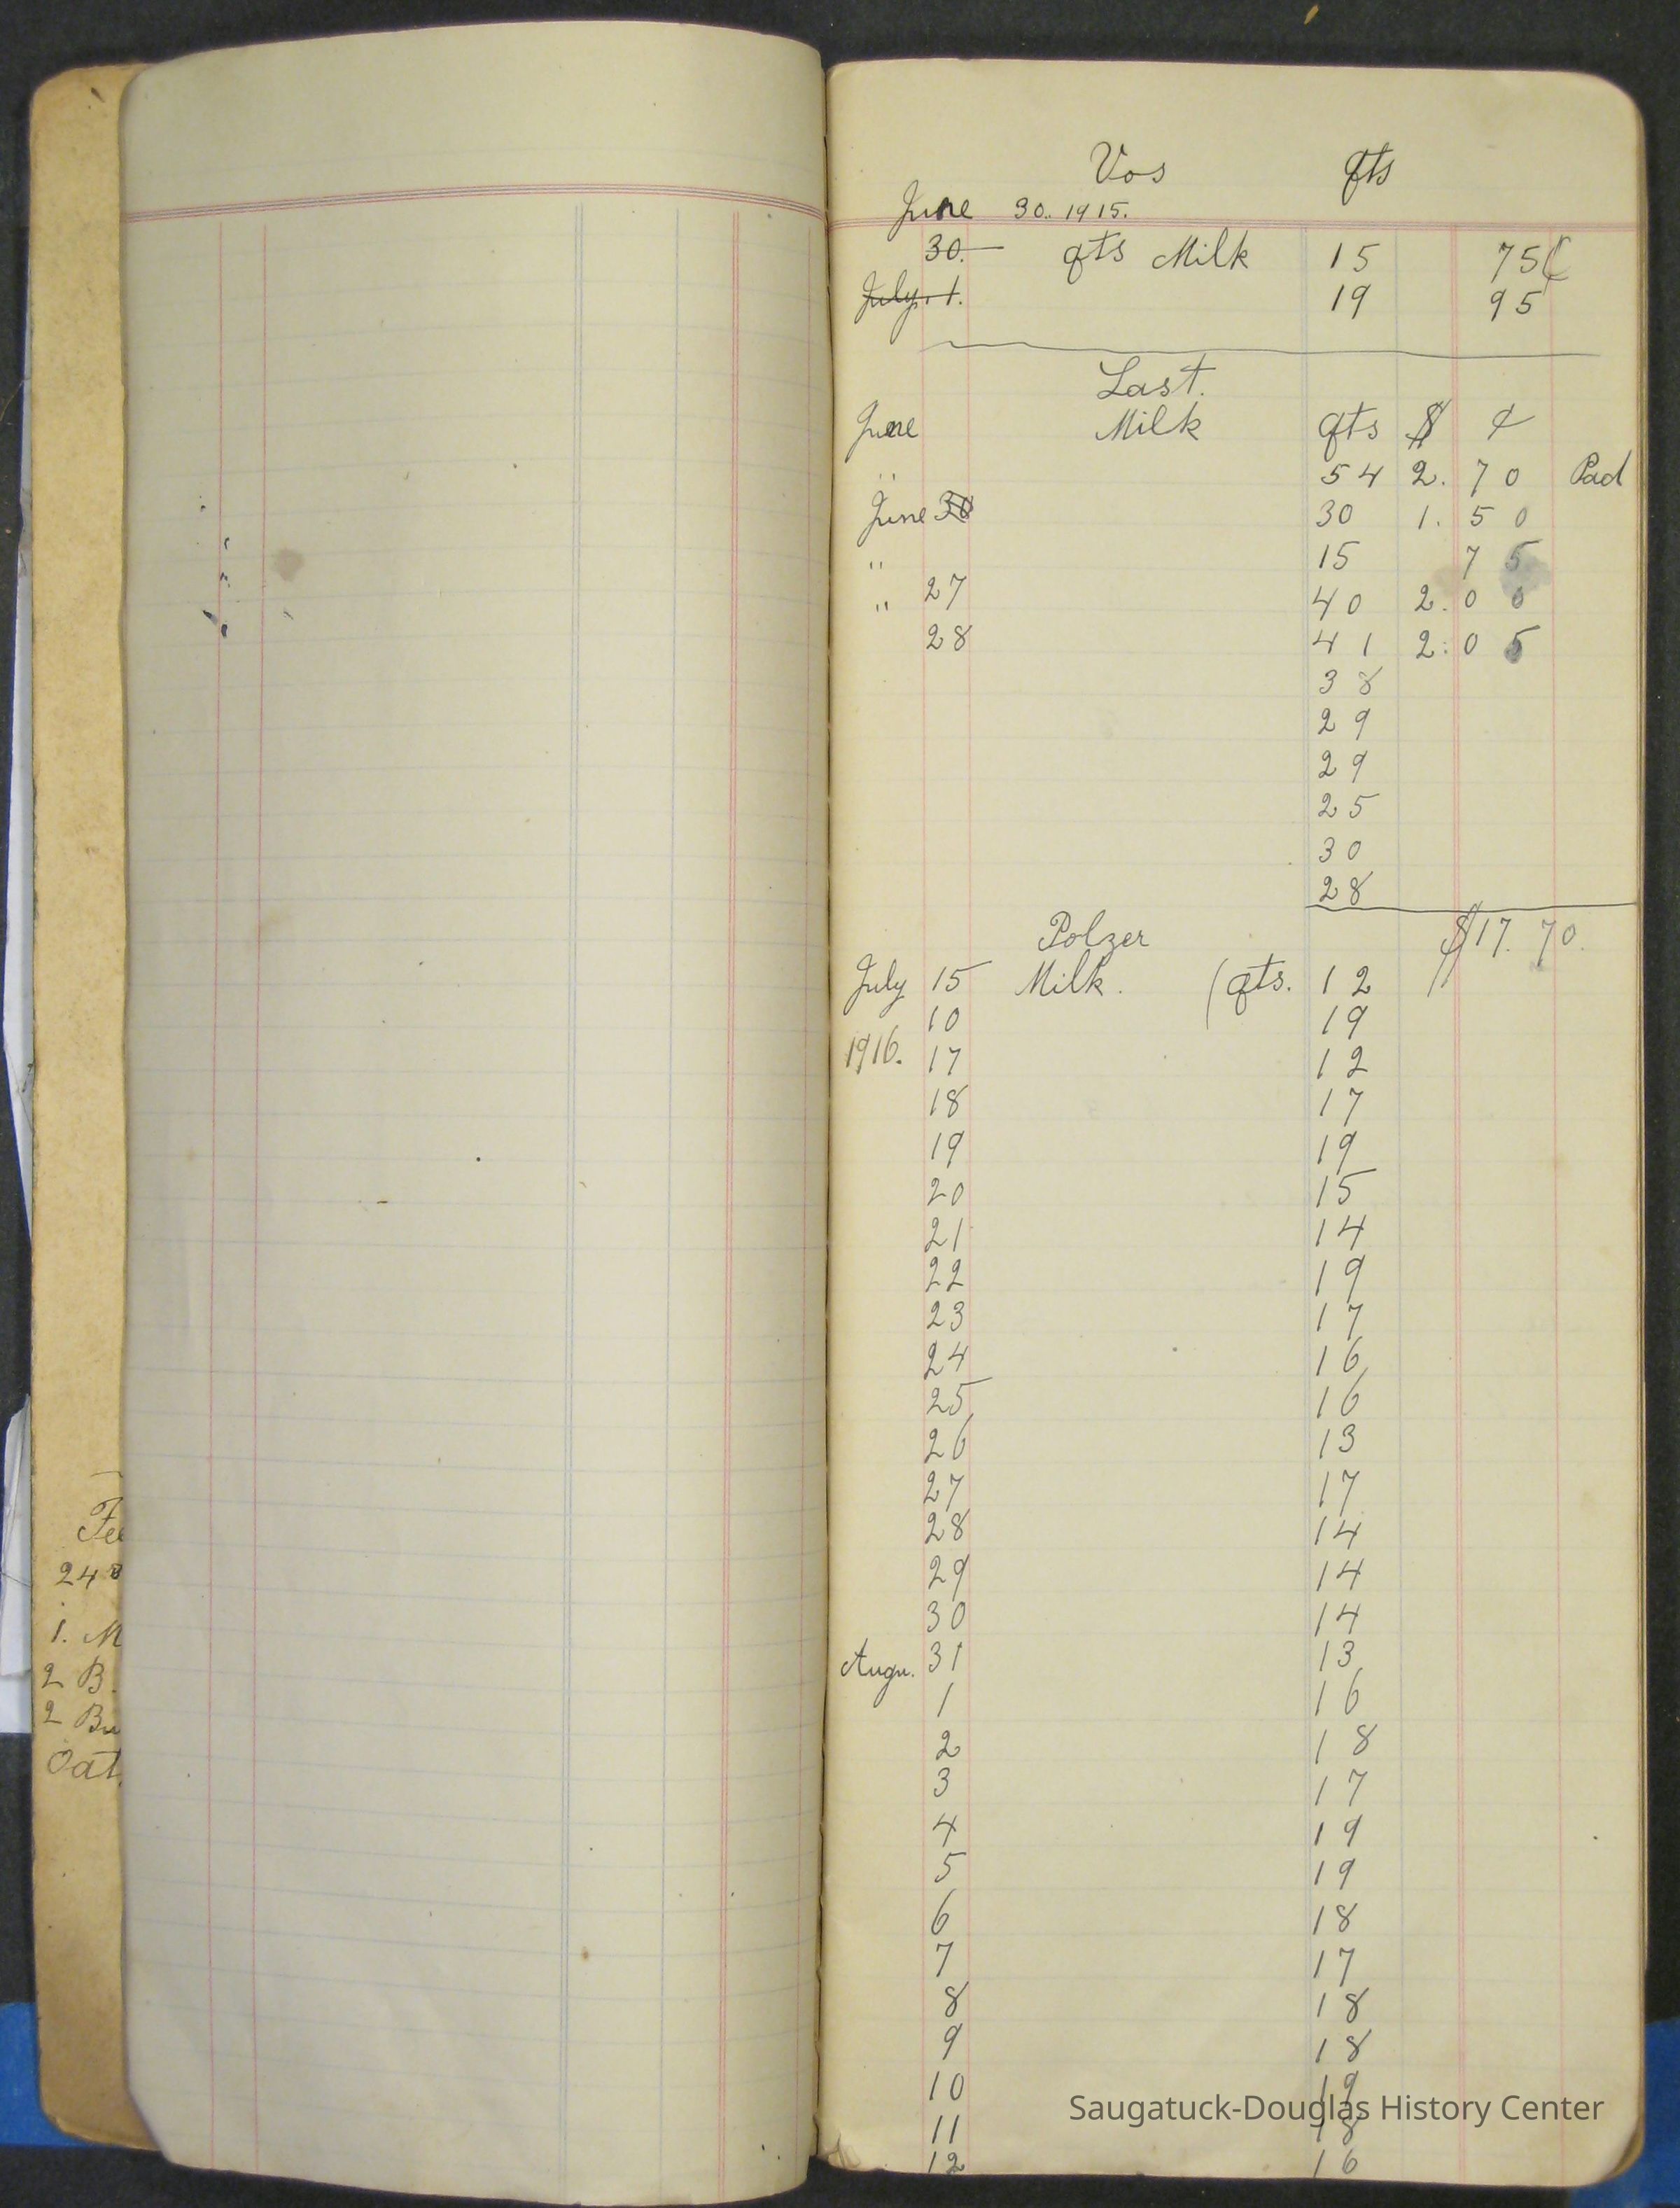 Fee
248
1. M
2 B.
2 Bu
Oat.
Vos qts
June 30. 1915.
30. qts Milk 15 75¢
July. 1. 19 95
Last.
June Milk qts $ ¢
" 54 2. 70 Pad
June 30 30 1. 50
" 15 75
" 27 40 2. 00
28 41 2. 05
38
29
29
25
30
28
Polzer $17. 70.
July 15 Milk. (qts. 12
10 19
1916. 17 12
18 17
19 19
20 15
21 14
22 19
23 17
24 16
25 16
26 13
27 17
28 14
29 14
30 14
Augu. 31 13
1 16
2 18
3 17
4 19
5 19
6 18
7 17
8 18
9 18
10 19
Saugatuck-Douglas History Center
11 18
12 16